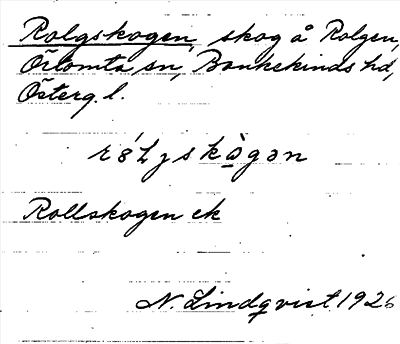 Rolgskogen, skog å Rolgen,
Örtomta sn, Bankekinds hd,
Österg. l.
Rollskogen ek
N. Lindqvist 1926